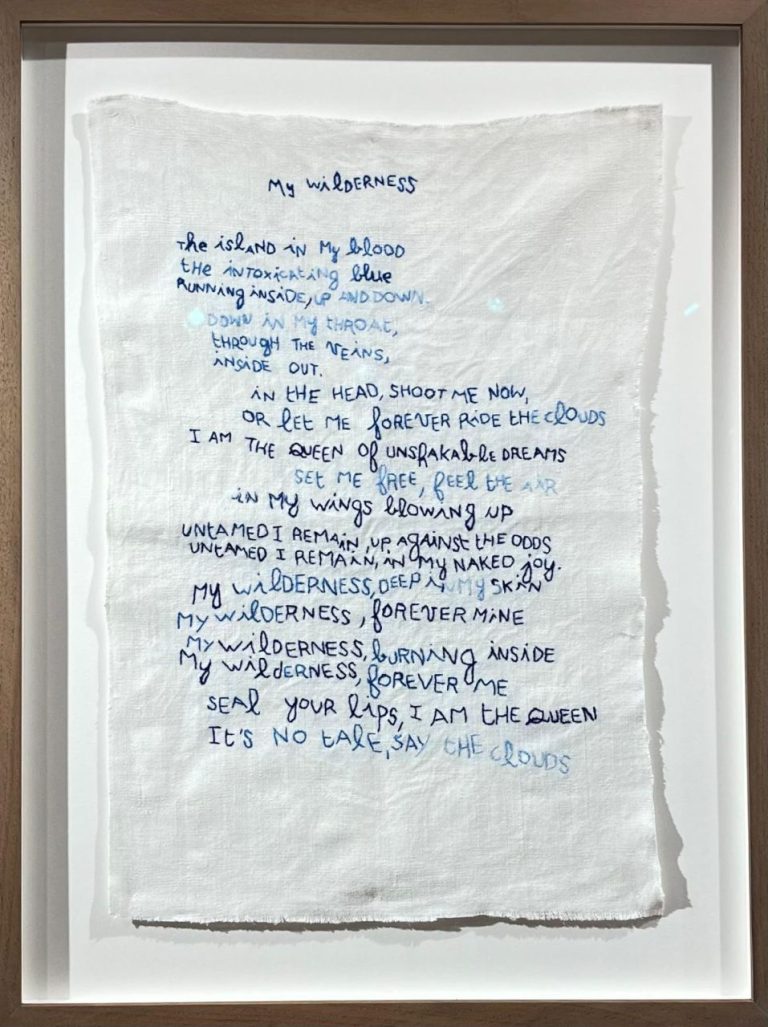 My WiLDERNESS
The isLAND iN My blOOD
tHe iNTOXiCAtiNg bluE
RUNNiNg iNSiDE, UP AND DOWN.
DOWN iN My tHROAt,
tHROUgH THE VEiNS,
iNSiDE OUT.
iN tHE HEAD, SHOOT ME NOW,
OR LEt ME fOREVER RiDE tHE ClOUDS
I AM THE QUEEN Of UNSHAKAblE DREAMS
SEt ME fREE, fEEl tHE AiR
iN My WiNgS blOWiNg UP
UNtAMED I REMAiN, UP AgAiNSt tHE ODDS
UNtAMED I REMAiN, iN My NAKED jOy.
My WilDERNESS, DEEP iN My SKiN
My WilDERNESS, fOREVER MiNE
My WilDERNESS, bURNiNg iNSiDE
My WildERNESS, fOREVER ME
SEAl yOUR lipS, I AM tHE QUEEN
It'S NO tAlE, SAY tHE ClOUDS